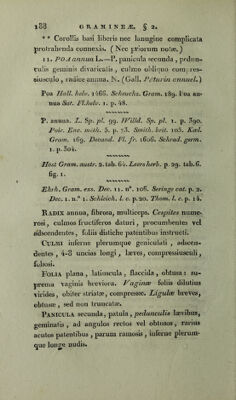 188 GRAMINEÆ. § 2.
** Corollis basi liberis nec lanugine complicata
protrahenda connexis. (Nec priorum notæ.)
11. POA annua L.—P. panicula secunda, pedun-
culis geminis divaricatis, culmo obliquo com-
siusculo, radice annua. N. (Gall. Paturin annuel.)
Poa Hall. helv. 1466. Scheuchz. Gram. 189. Poa an-
nua Sut. Fl.helv. 1. p. 48.
P. annua. L. Sp. pl. 99. Willd. Sp. pl. 1. p. 390.
Poir. Enc. méth. 5. p. 73. Smith. brit. 105. Kœl.
Gram. 169. Decand. Fl. fr. 1606. Schrad. germ.
1. p. 304.
Host Gram. austr. 2. tab. 64. Leers herb. p. 29. tab. 6.
fig. 1.
Ehrh. Gram. exs. Dec. 11. n° 106. Seringe cat. p. 2.
Dec. 1. n.° 1. Schleich. l. c. p. 20. Thom. l. c. p. 14.
RADIX annua, fibrosa, multiceps. Cespites nume-
rosi, culmos fructiferos daturi, procumbentes vel
adscendentes, foliis distiche patentibus instructi.
CULMI inferne plerumque geniculati, adscen-
dentes, 4-8 uncias longi, læves, compressiusculi,
foliosi.
FOLIA plana, latiuscula, flaccida, obtusa: su-
prema vaginis breviora. Vaginæ foliis dilutius
virides, obiter striatæ, compressæ. Ligulæ breves,
obtusæ, sed non truncatæ.
PANICULA secunda, patula, pedunculis lævibus,
geminatis, ad angulos rectos vel obtusos, rarius
acutos patentibus, parum ramosis, inferne plerum-
que longe nudis.